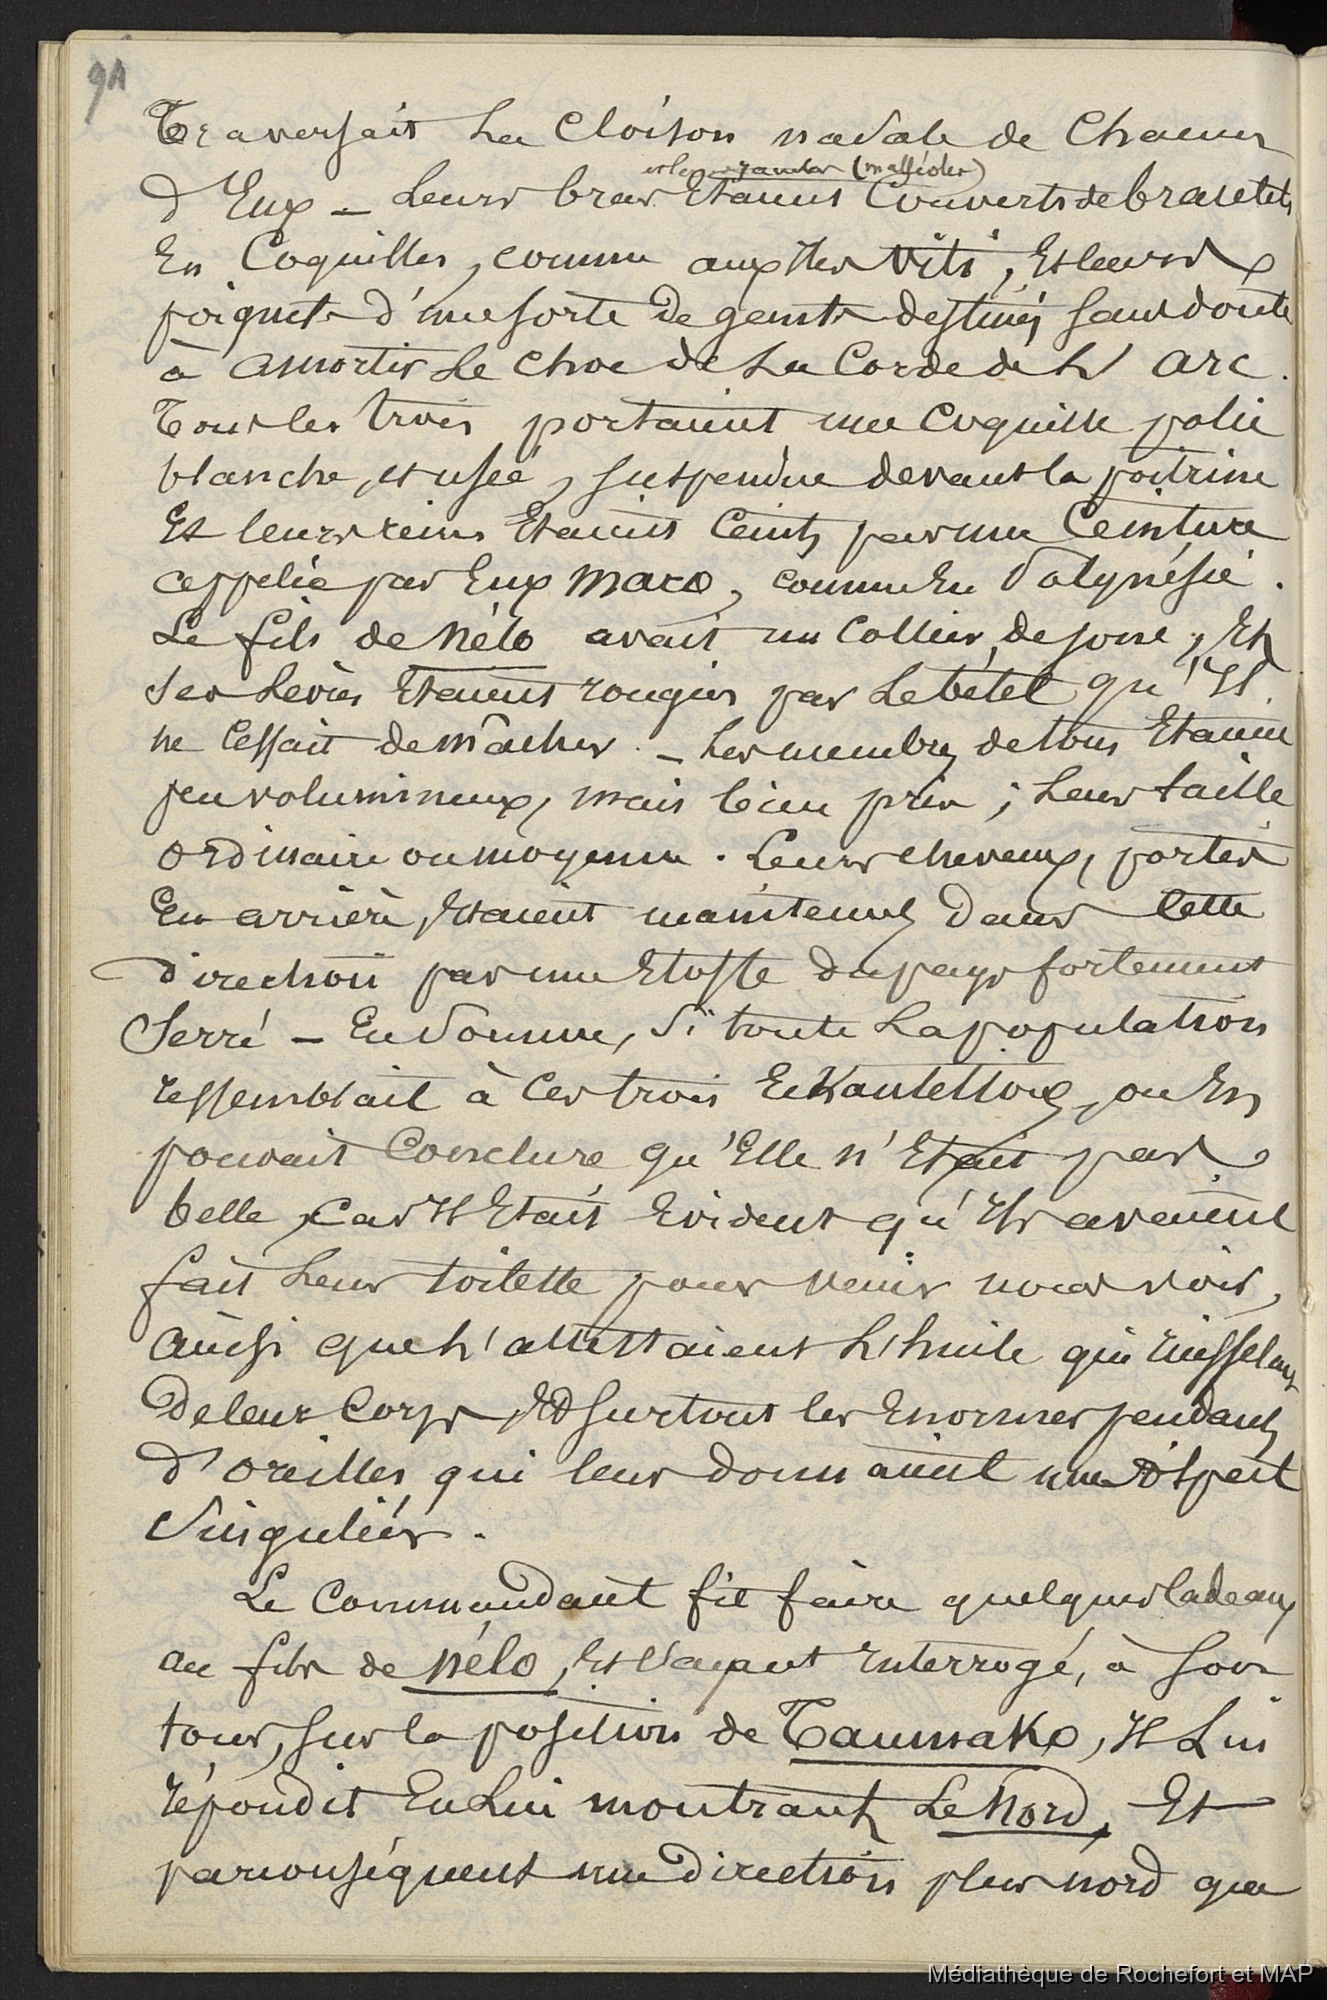 94
Traversait La Cloison nasale de Chacun
et les jambes (malléoles)
d'Eux – Leurs bras Etaient Couverts de bracelets
En Coquilles, comme aux Iles Viti, Et leurs
poignets d'une sorte de gants destinés sans doute
à amortir Le choc de La Corde de L'arc.
Tous les trois portaient une Coquille polie
blanche, et usée, suspendue devant la poitrine
Et leurs reins Etaient Ceints par une Ceinture
appelée par Eux maro, comme En Polynésie.
Le fils de Nélo avait un Collier de jonc, Et
ses Levres Etaient rougies par Le bétel qu'Il
ne Cessait de mâcher. – Les membres de tous Etaient
peu volumineux, mais bien pris; Leur taille
ordinaire ou moyenne. Leurs cheveux, portés
En arrière, Etaient maintenus dans Cette
direction par une Etoffe du pays fortement
Serré – En Somme, Si toute La population
ressemblait à Ces trois Echantillons, on En
pouvait Conclure qu'Elle n'Etait pas
belle, Car Il Etait Evident qu'Ils avaient
fait Leur toilette pour venir nous voir,
ainsi que L'attestaient L'huile qui ruisselait
de leur Corps, Et surtout les Enormes pendants
d'oreilles qui leur donnaient une aspect
Singulier.
Le Commandant fit faire quelques Cadeaux
au fils de Nélo, Et L'ayant Interrogé, à son
tour, sur la position de Taumako, Il Lui
répondit En Lui montrant Le Nord, Et
par conséquent une direction plus nord que
Médiathèque de Rochefort et MAP